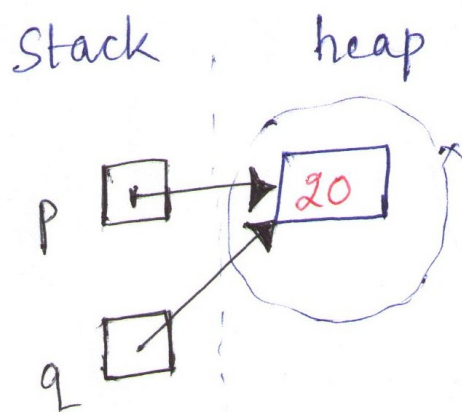 Stack heap
p 20
q